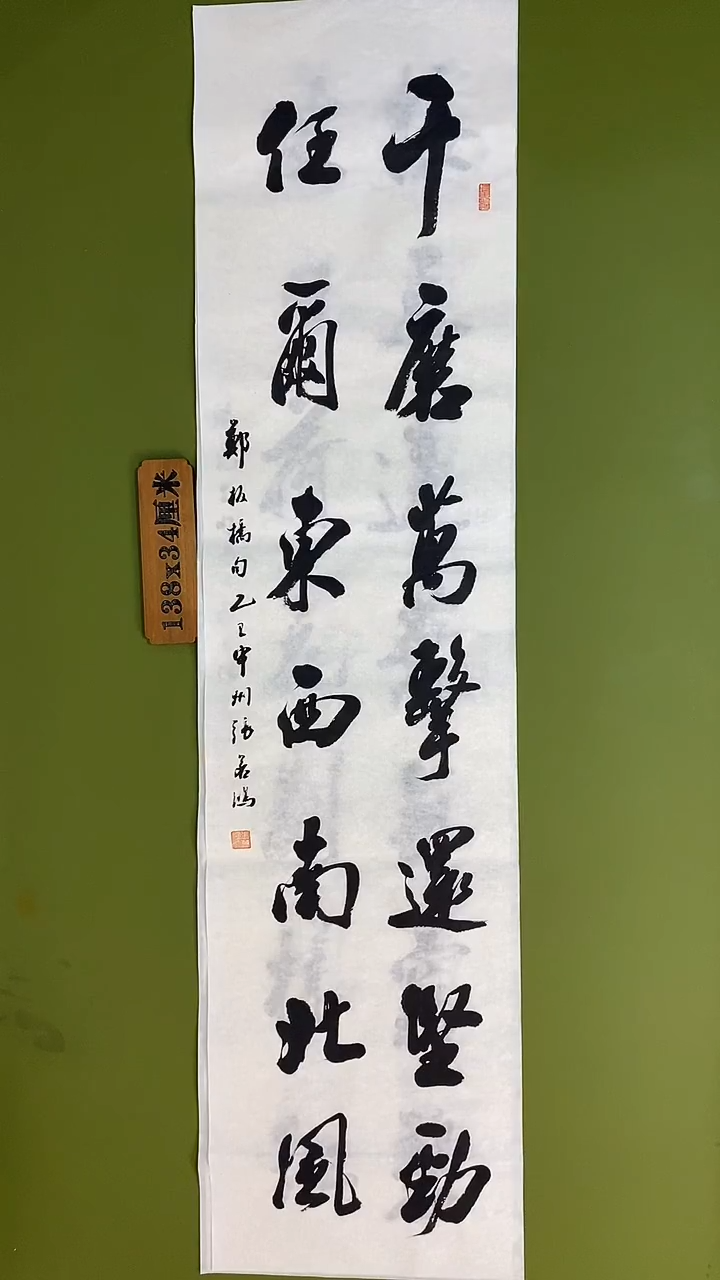 千磨萬擊還堅勁
任爾東西南北風
鄭板橋句乙巳中州張若鴻
138x34厘米